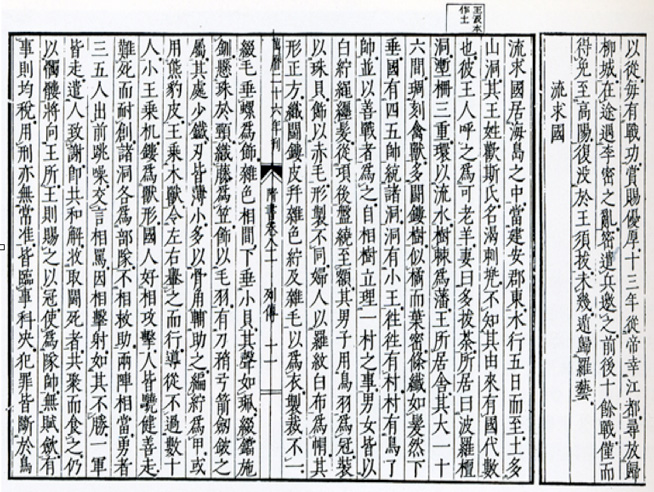 王汲本
作土
以從每有戰功賞賜優厚十三年從帝幸江都尋放歸
柳城在途遇李密之亂密遣兵邀之前後十餘戰僅而
得免至高陽復没於王須拔未幾遁歸羅藝
流求國
流求國居海島之中當建安郡東水行五日而至土多
山洞其王姓歡斯氏名渴剌兜不知其由來有國代數
也彼王人呼之為可老羊妻曰多拔荼所居曰波羅檀
洞塹柵三重環以流水樹棘為藩王所居舍其大一十
六間琱刻禽獸多鬬鏤樹似橘而葉密條纖如髮然下
垂國有四五帥統諸洞洞有小王往往有村村有鳥了
帥並以善戰者為之自相樹立理一村之事男女皆以
白紵繩纏髮從項後盤繞至額其男子用鳥羽為冠裝
以珠貝飾以赤毛形製不同婦人以羅紋白布為帽其
形正方織鬬鏤皮并雜色紵及雜毛以為衣製裁不一
萬曆二十六年刊 隋書卷八十一 列傳 十一
綴毛垂螺為飾雜色相間下垂小貝其聲如珮綴鐺施
釧懸珠於頸織藤為笠飾以毛羽有刀矟弓箭劍鈹之
屬其處少鐵刃皆薄小多以骨角輔助之編紵為甲或
用熊豹皮王乘木獸令左右轝之而行導從不過數十
人小王乘机鏤為獸形國人好相攻擊人皆驍健善走
難死而耐創諸洞各為部隊不相救助兩陣相當勇者
三五人出前跳噪交言相罵因相擊射如其不勝一軍
皆走遣人致謝即共和解收取鬬死者共聚而食之仍
以髑髏將向王所王則賜之以冠使為隊帥無賦斂有
事則均稅用刑亦無常准皆臨事科決犯罪皆斷於鳥